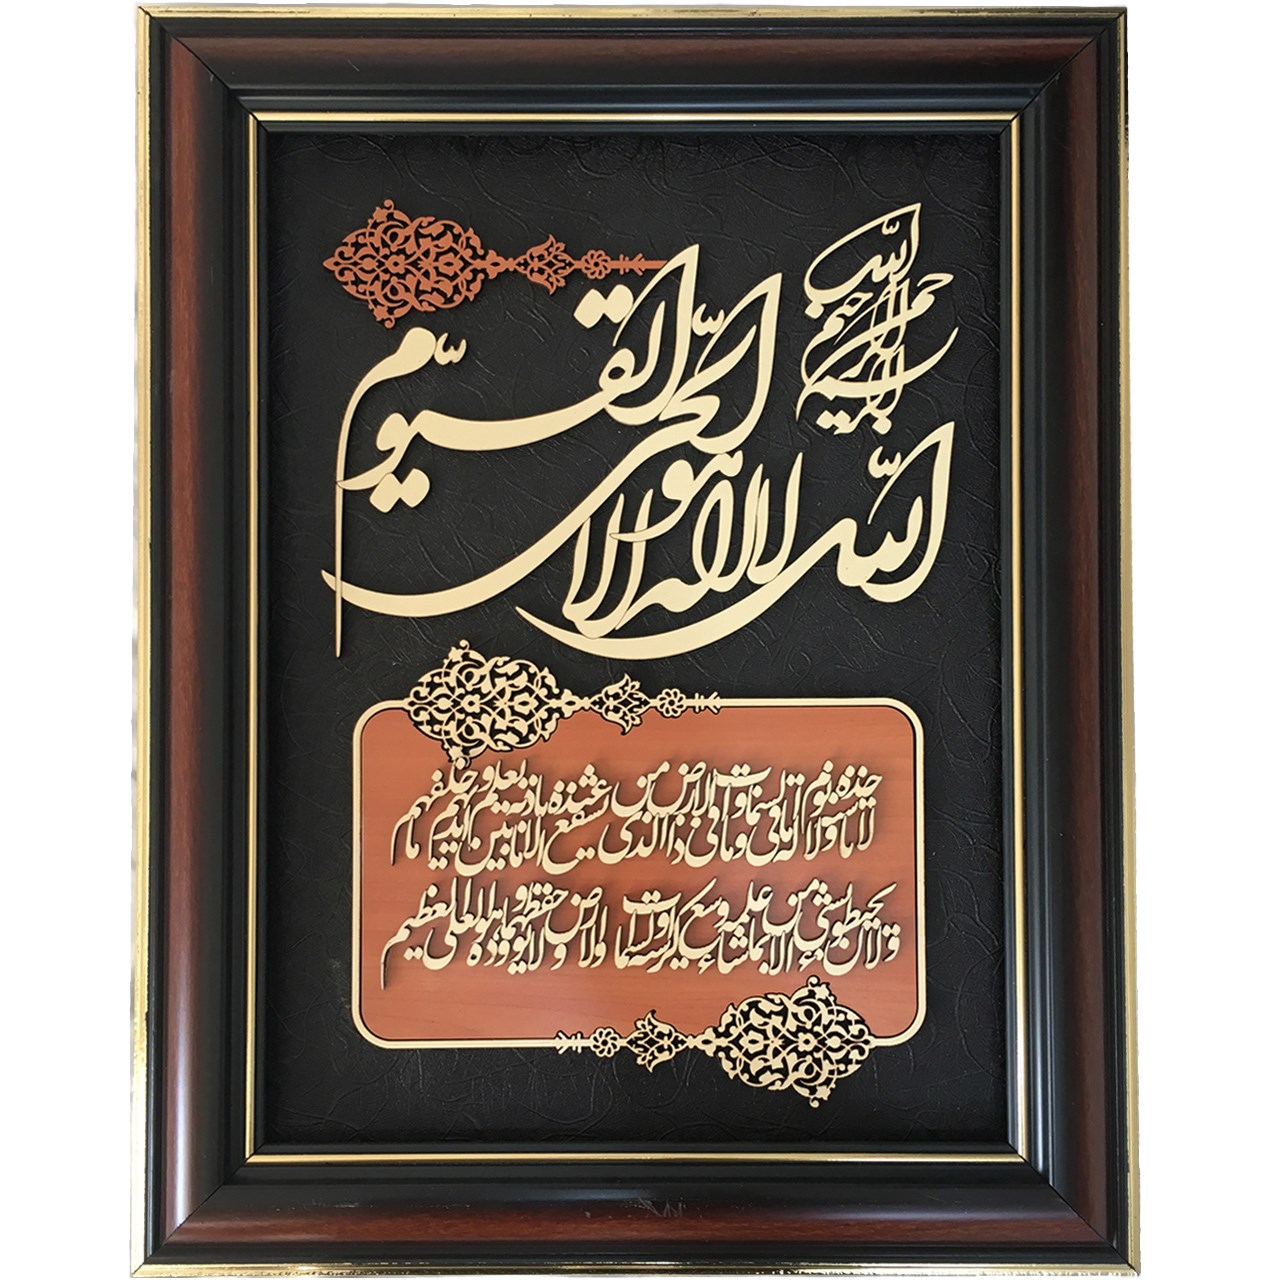 بسم الله الرحمن الرحیم
الله لا اله الا هو الحی القیوم
لا تاخذه سنة و لا نوم له ما فی السماوات و ما فی الارض من ذا الذی یشفع عنده الا باذنه یعلم ما بین ایدیهم و ما خلفهم
و لا یحیطون بشیء من علمه الا بما شاء وسع کرسیه السماوات و الارض و لا یوده حفظهما و هو العلی العظیم